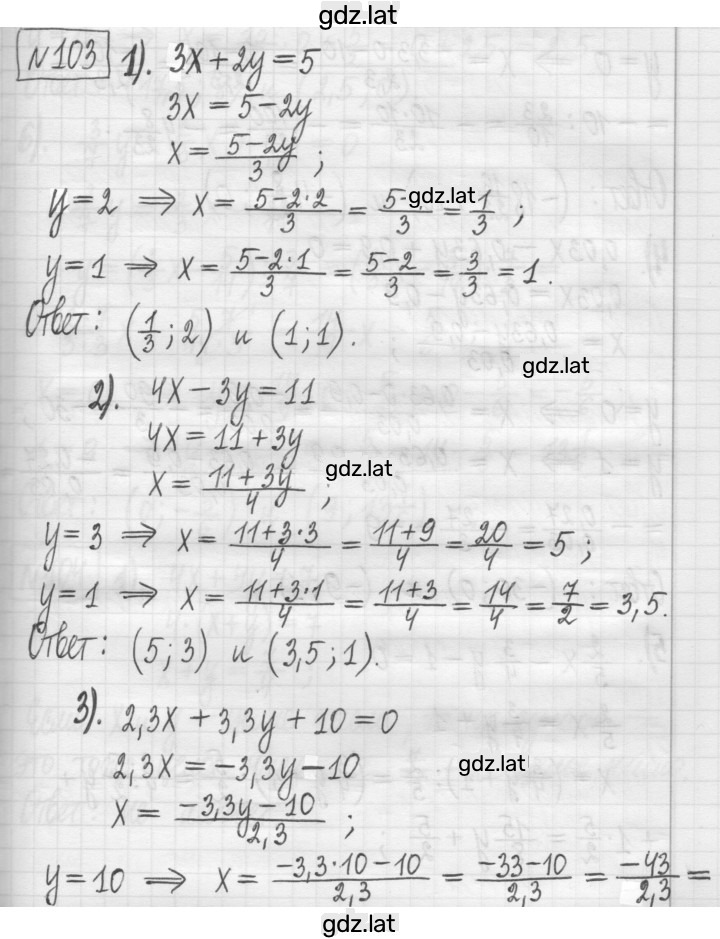 gdz.lat
№103 1). 3x + 2y = 5
3x = 5 - 2y
x = (5 - 2y)/3 ;
y = 2 ⇒ x = (5 - 2·2)/3 = 5-
gdz.lat
/3 = 1/3 ;
y = 1 ⇒ x = (5 - 2·1)/3 = (5 - 2)/3 = 3/3 = 1.
Ответ: (1/3; 2) и (1; 1).
gdz.lat
2). 4x - 3y = 11
4x = 11 + 3y
x = (11 + 3y)/4 ;
gdz.lat
y = 3 ⇒ x = (11 + 3·3)/4 = (11 + 9)/4 = 20/4 = 5;
y = 1 ⇒ x = (11 + 3·1)/4 = (11 + 3)/4 = 14/4 = 7/2 = 3,5.
Ответ: (5; 3) и (3,5; 1).
3). 2,3x + 3,3y + 10 = 0
2,3x = -3,3y - 10
gdz.lat
x = (-3,3y - 10)/2,3 ;
y = 10 ⇒ x = (-3,3·10 - 10)/2,3 = (-33 - 10)/2,3 = -43/2,3 =
gdz.lat